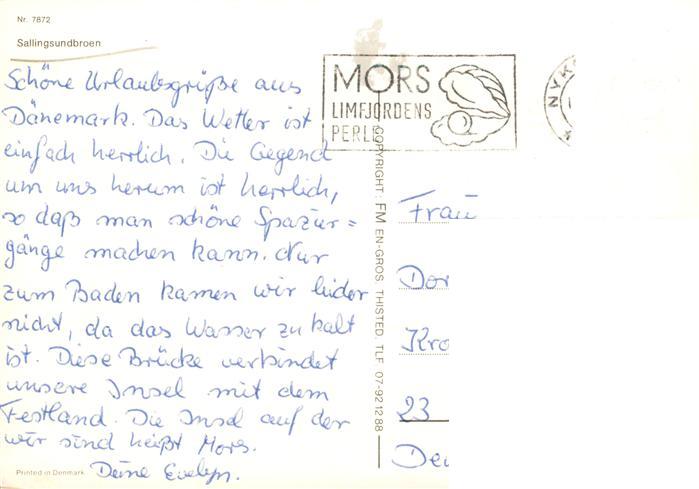 Nr. 7872
Sallingsundbroen
Schöne Urlaubsgrüße aus
Dänemark. Das Wetter ist
einfach herrlich. Die Gegend
um uns herum ist herrlich,
so daß man schöne Spazier=
gänge machen kann. Nur
zum Baden kamen wir leider
nicht, da das Wasser zu kalt
ist. Diese Brücke verbindet
unsere Insel mit dem
Festland. Die Insel auf der
wir sind heißt Mors.
Deine Evelyn.
Printed in Denmark
MORS
LIMFJORDENS
PERLE
NYK
COPYRIGHT: FM EN-GROS THISTED. TLF. 07-92 12 88
Frau
Dor
Kro
23
Deu